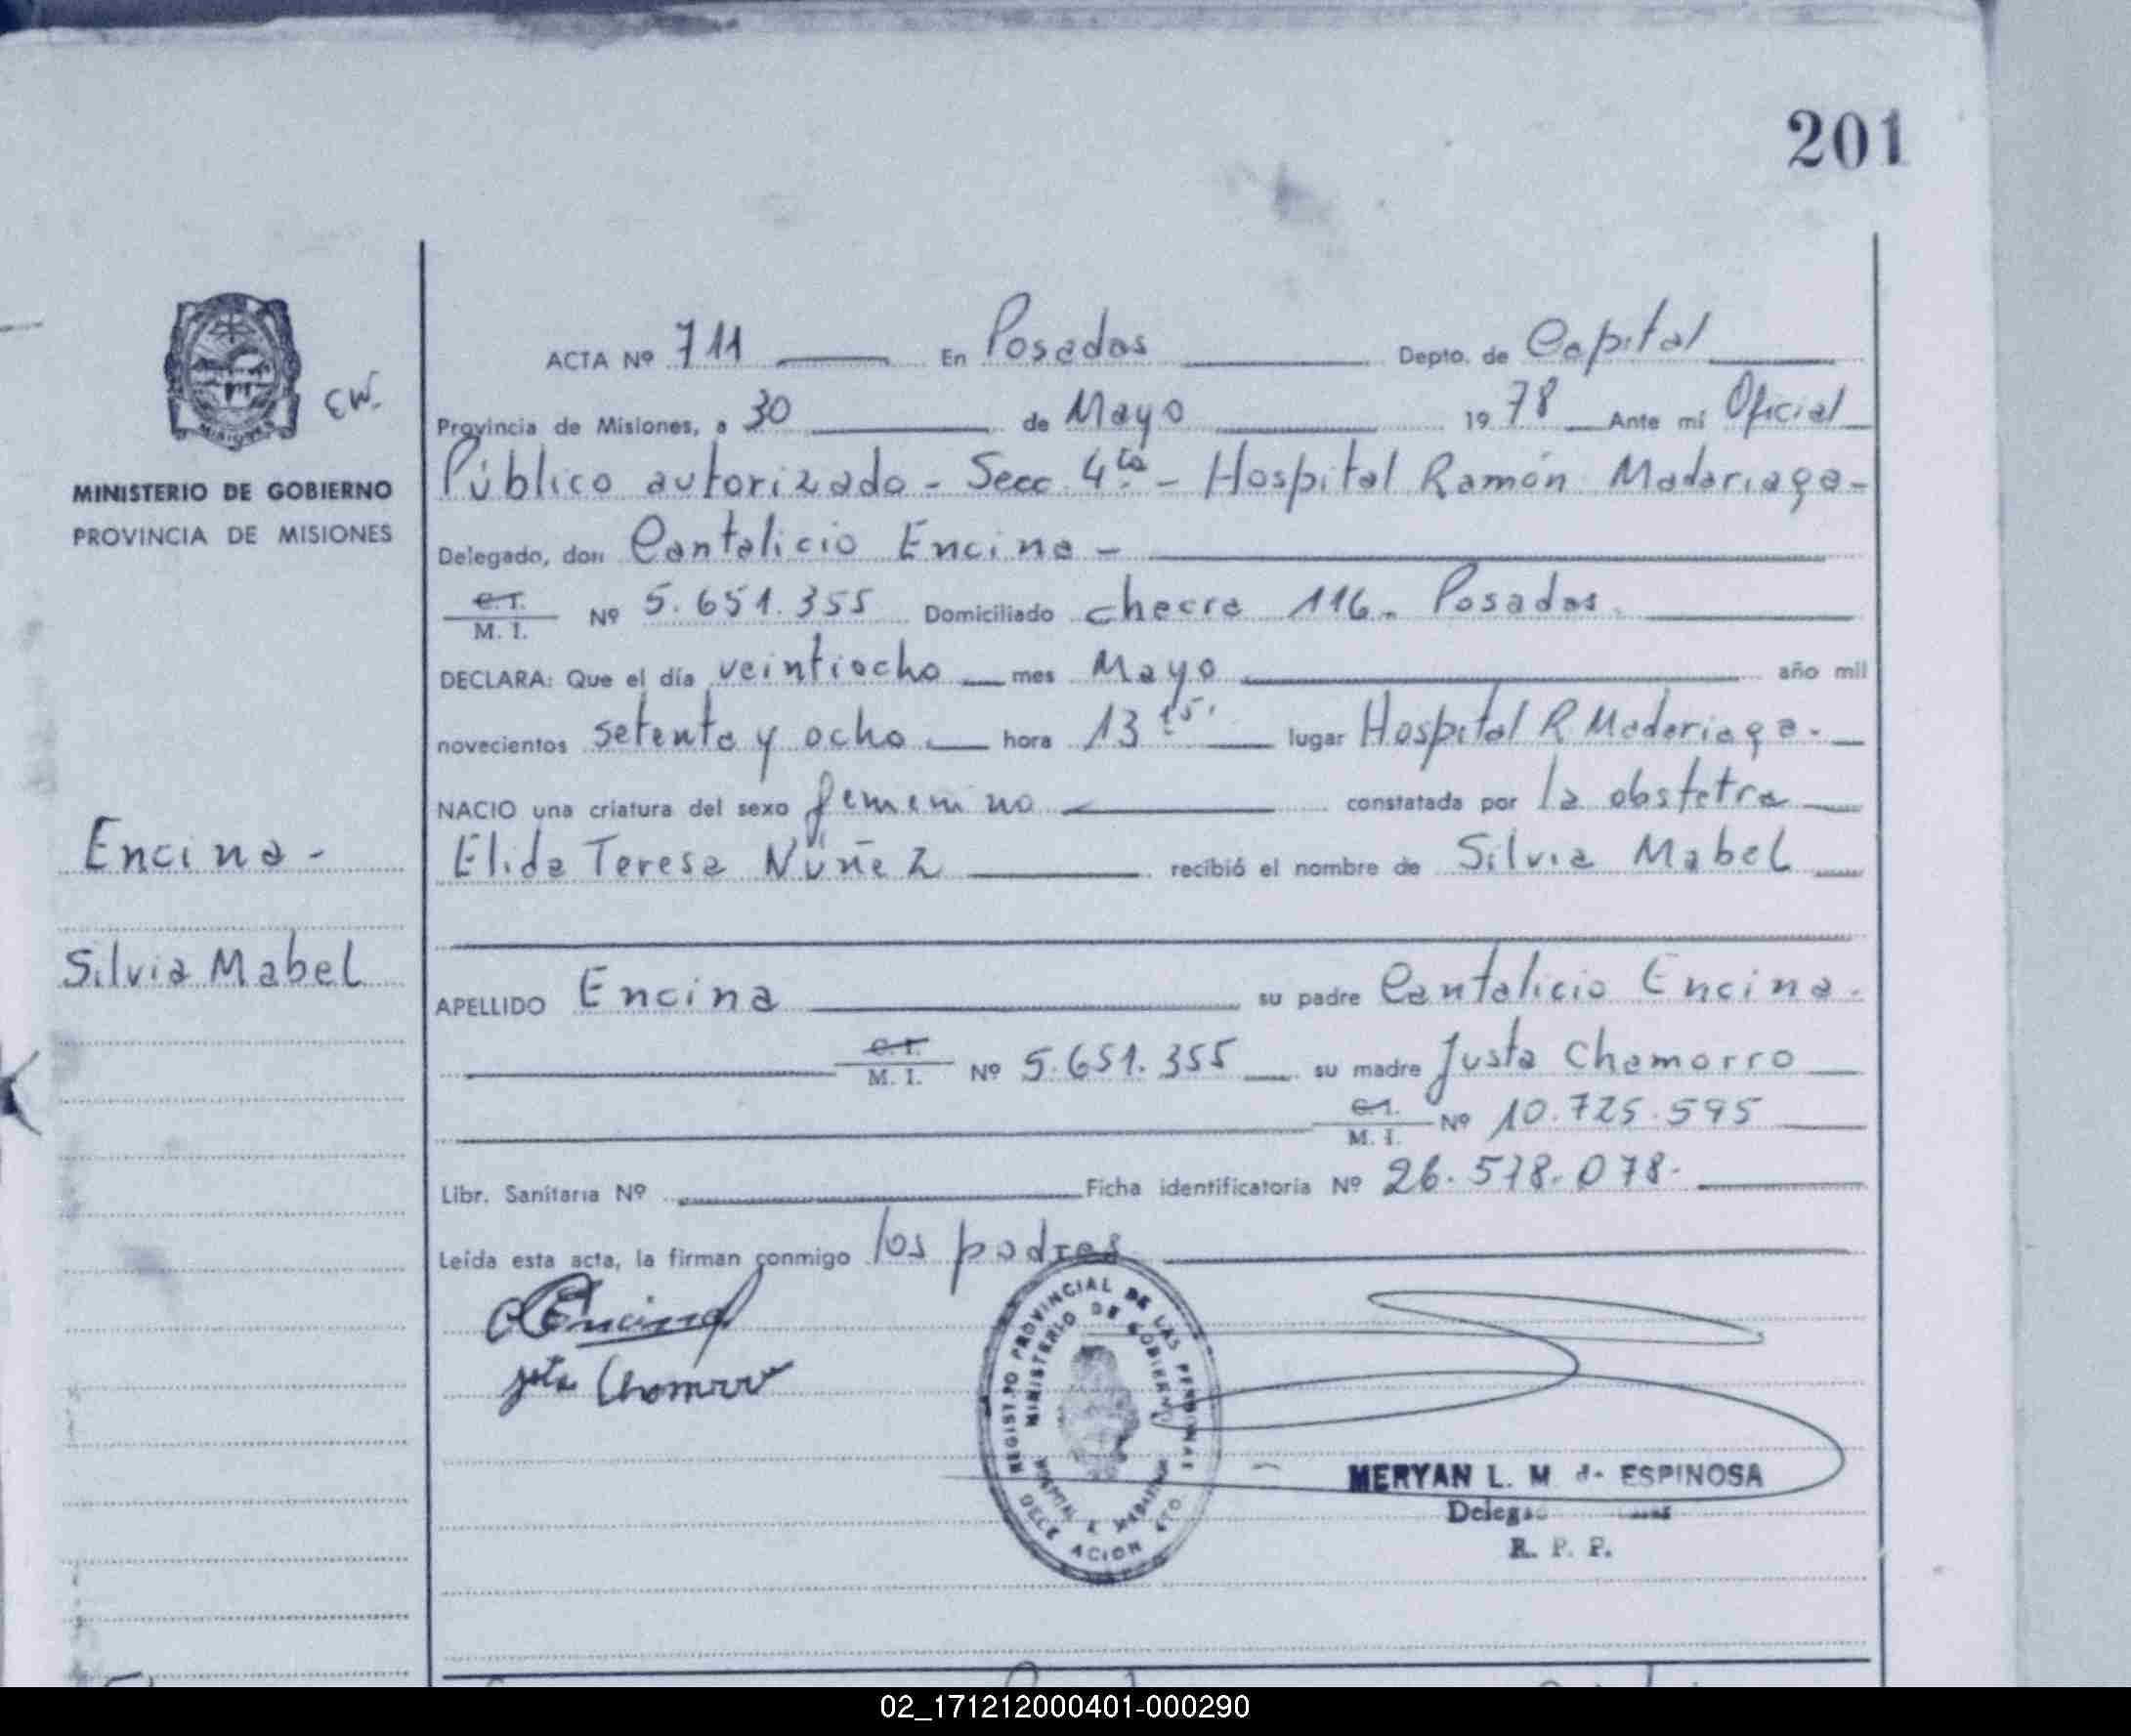 201
MISIONES
EW.
MINISTERIO DE GOBIERNO
PROVINCIA DE MISIONES
Encina -
Silvia Mabel
ACTA Nº 711 En Posadas Depto. de Capital
Provincia de Misiones, a 30 de Mayo 1978 Ante mí Oficial
Público autorizado - Secc. 4ta - Hospital Ramón Madariaga -
Delegado, don Cantalicio Encina -
C.I.
M. I. Nº 5.651.355 Domiciliado chacra 116. Posadas.
DECLARA: Que el día veintiocho mes Mayo año mil
novecientos setenta y ocho hora 13 15' lugar Hospital R Madariaga.
NACIO una criatura del sexo femenino constatada por la obstetra
Elida Teresa Núñez recibió el nombre de Silvia Mabel
APELLIDO Encina su padre Cantalicio Encina.
C.I.
M. I. Nº 5.651.355 su madre Justa Chamorro
C.I.
M. I. Nº 10.725.595
Libr. Sanitaria Nº Ficha identificatoria Nº 26.578.078.
Leída esta acta, la firman conmigo los padres
C Encina
Justa Chamorro
REGISTRO PROVINCIAL DE LAS PERSONAS
MINISTERIO DE GOBIERNO
HOSPITAL R MADARIAGA
DELEGACION 4TO
MERYAN L. M de ESPINOSA
R. P. P.
02_171212000401-000290